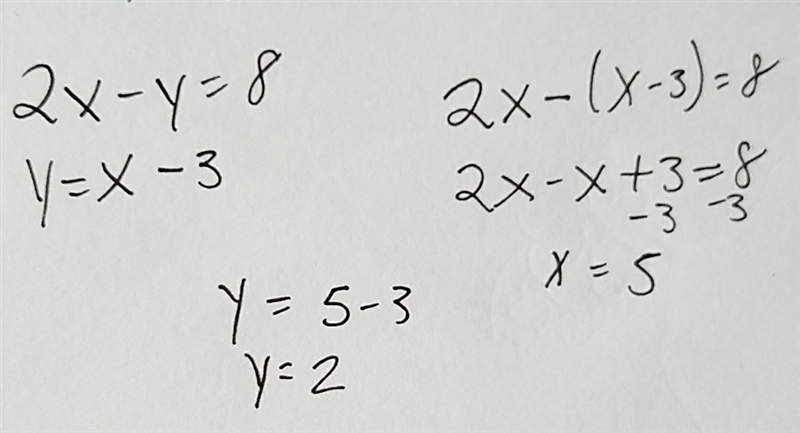 2x - y = 8
y = x - 3
2x - (x - 3) = 8
2x - x + 3 = 8
-3 -3
x = 5
y = 5 - 3
y = 2